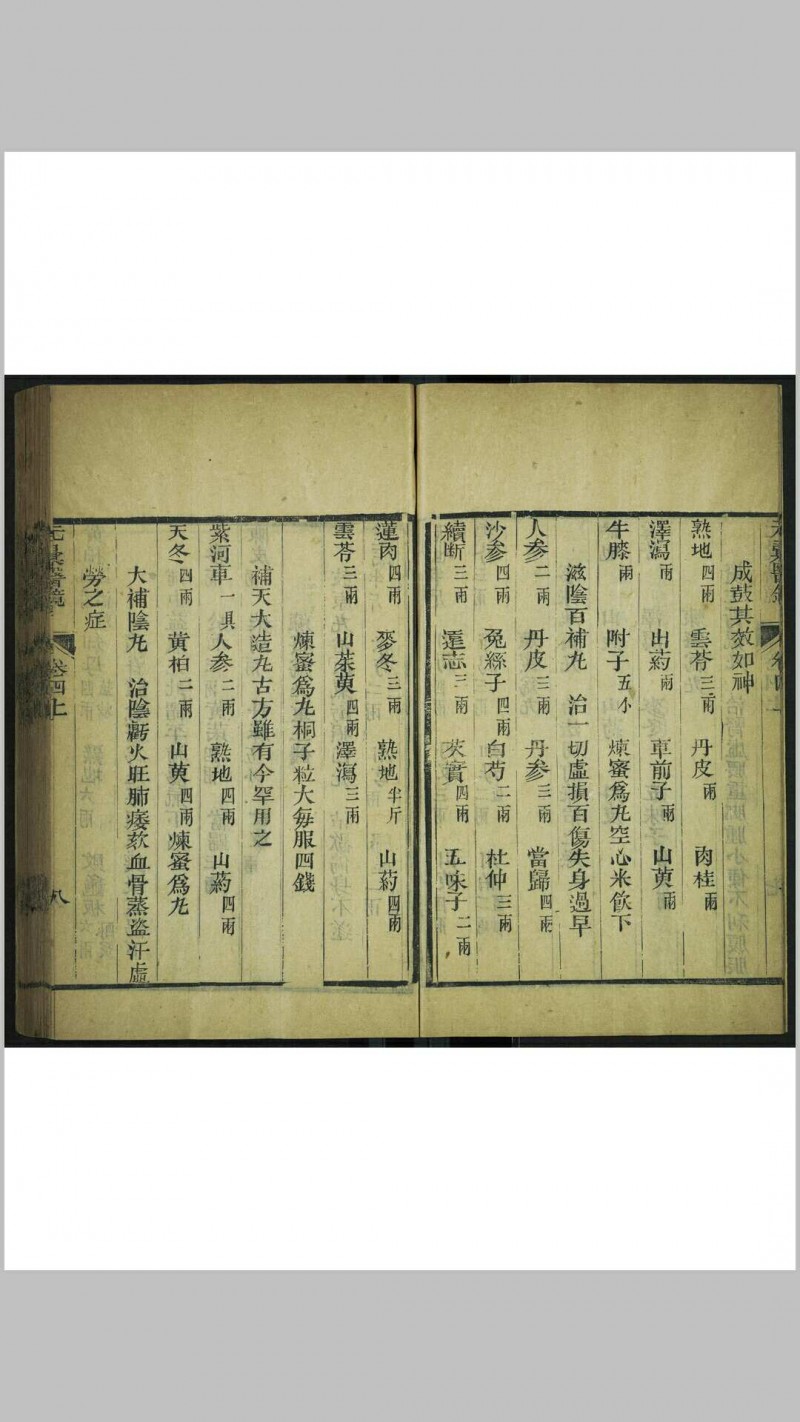 成鼓其效如神
熟地四兩 雲苓三兩 丹皮兩 肉桂兩
澤瀉兩 山药兩 車前子兩 山萸兩
牛膝兩 附子五小 煉蜜爲丸空心米飲下
滋陰百補丸 治一切虛損百傷失身過早
人参二兩 丹皮三兩 丹参三兩 當歸四兩
沙参四兩 兔絲子四兩 白芍二兩 杜仲三兩
續断三兩 遠志三兩 芡實四兩 五味子二兩
蓮肉四兩 麥冬三兩 熟地半斤 山药四兩
雲苓三兩 山茱萸四兩 澤瀉三兩
煉蜜爲丸桐子粒大每服四錢
補天大造丸古方雖有今罕用之
紫河車一具 人参二兩 熟地四兩 山药四兩
天冬四兩 黄柏二兩 山萸四兩 煉蜜爲丸
大補陰丸 治陰虧火旺肺痿欬血骨蒸盗汗虛
勞之症
卷四上
八